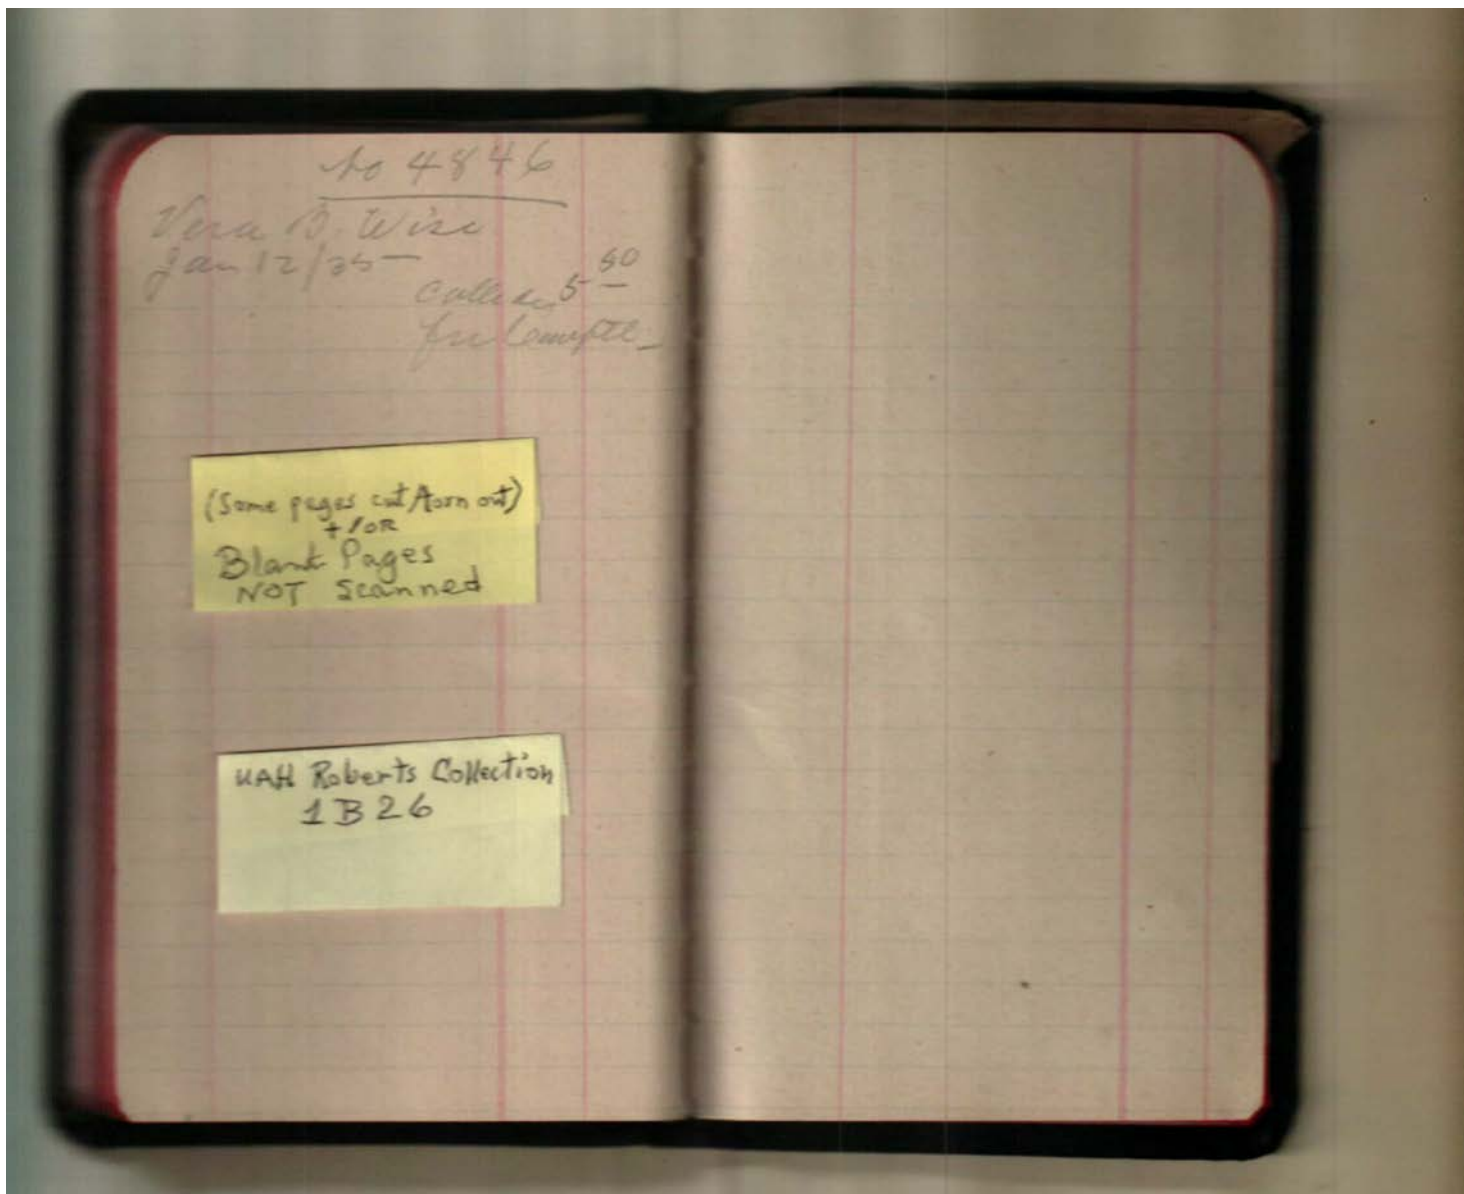 No 4846
Vera B. Wise
Jan 12/35
5 50
(Some pages cut/torn out)
+/OR
Blank Pages
NOT Scanned
UAH Roberts Collection
1B26